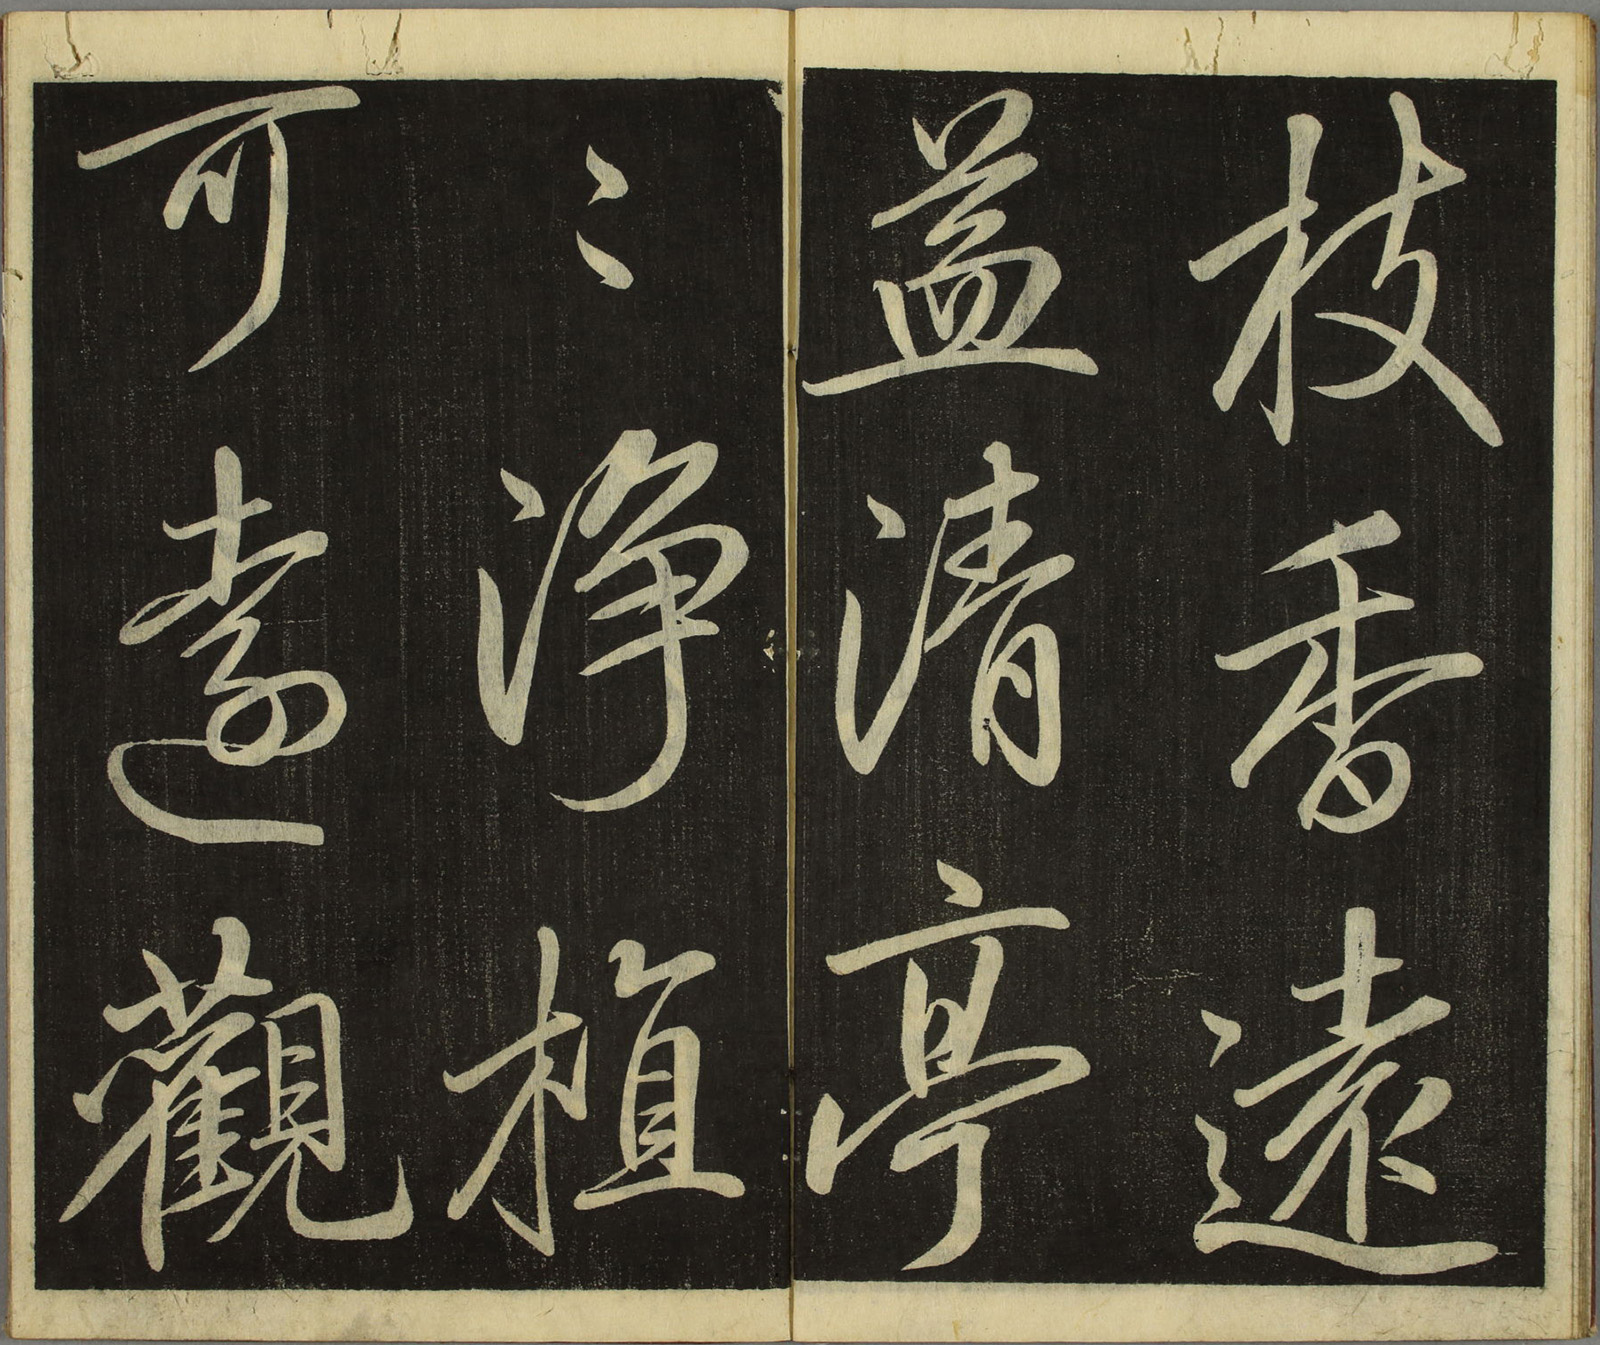 枝香遠
益清亭
〻淨植
可遠觀